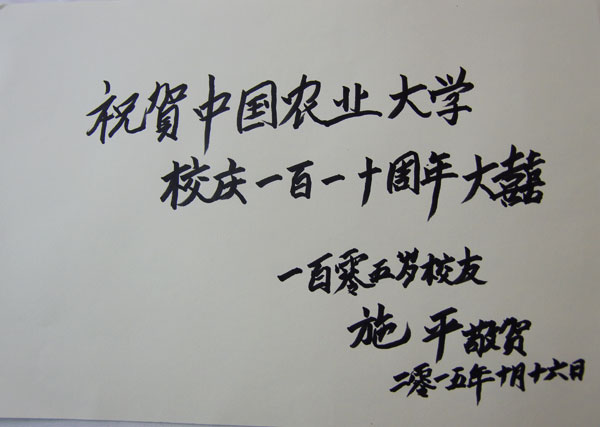 祝賀中国农业大学
校庆一百一十周年大囍
一百零五岁校友
施平敬贺
二零一五年十月十六日